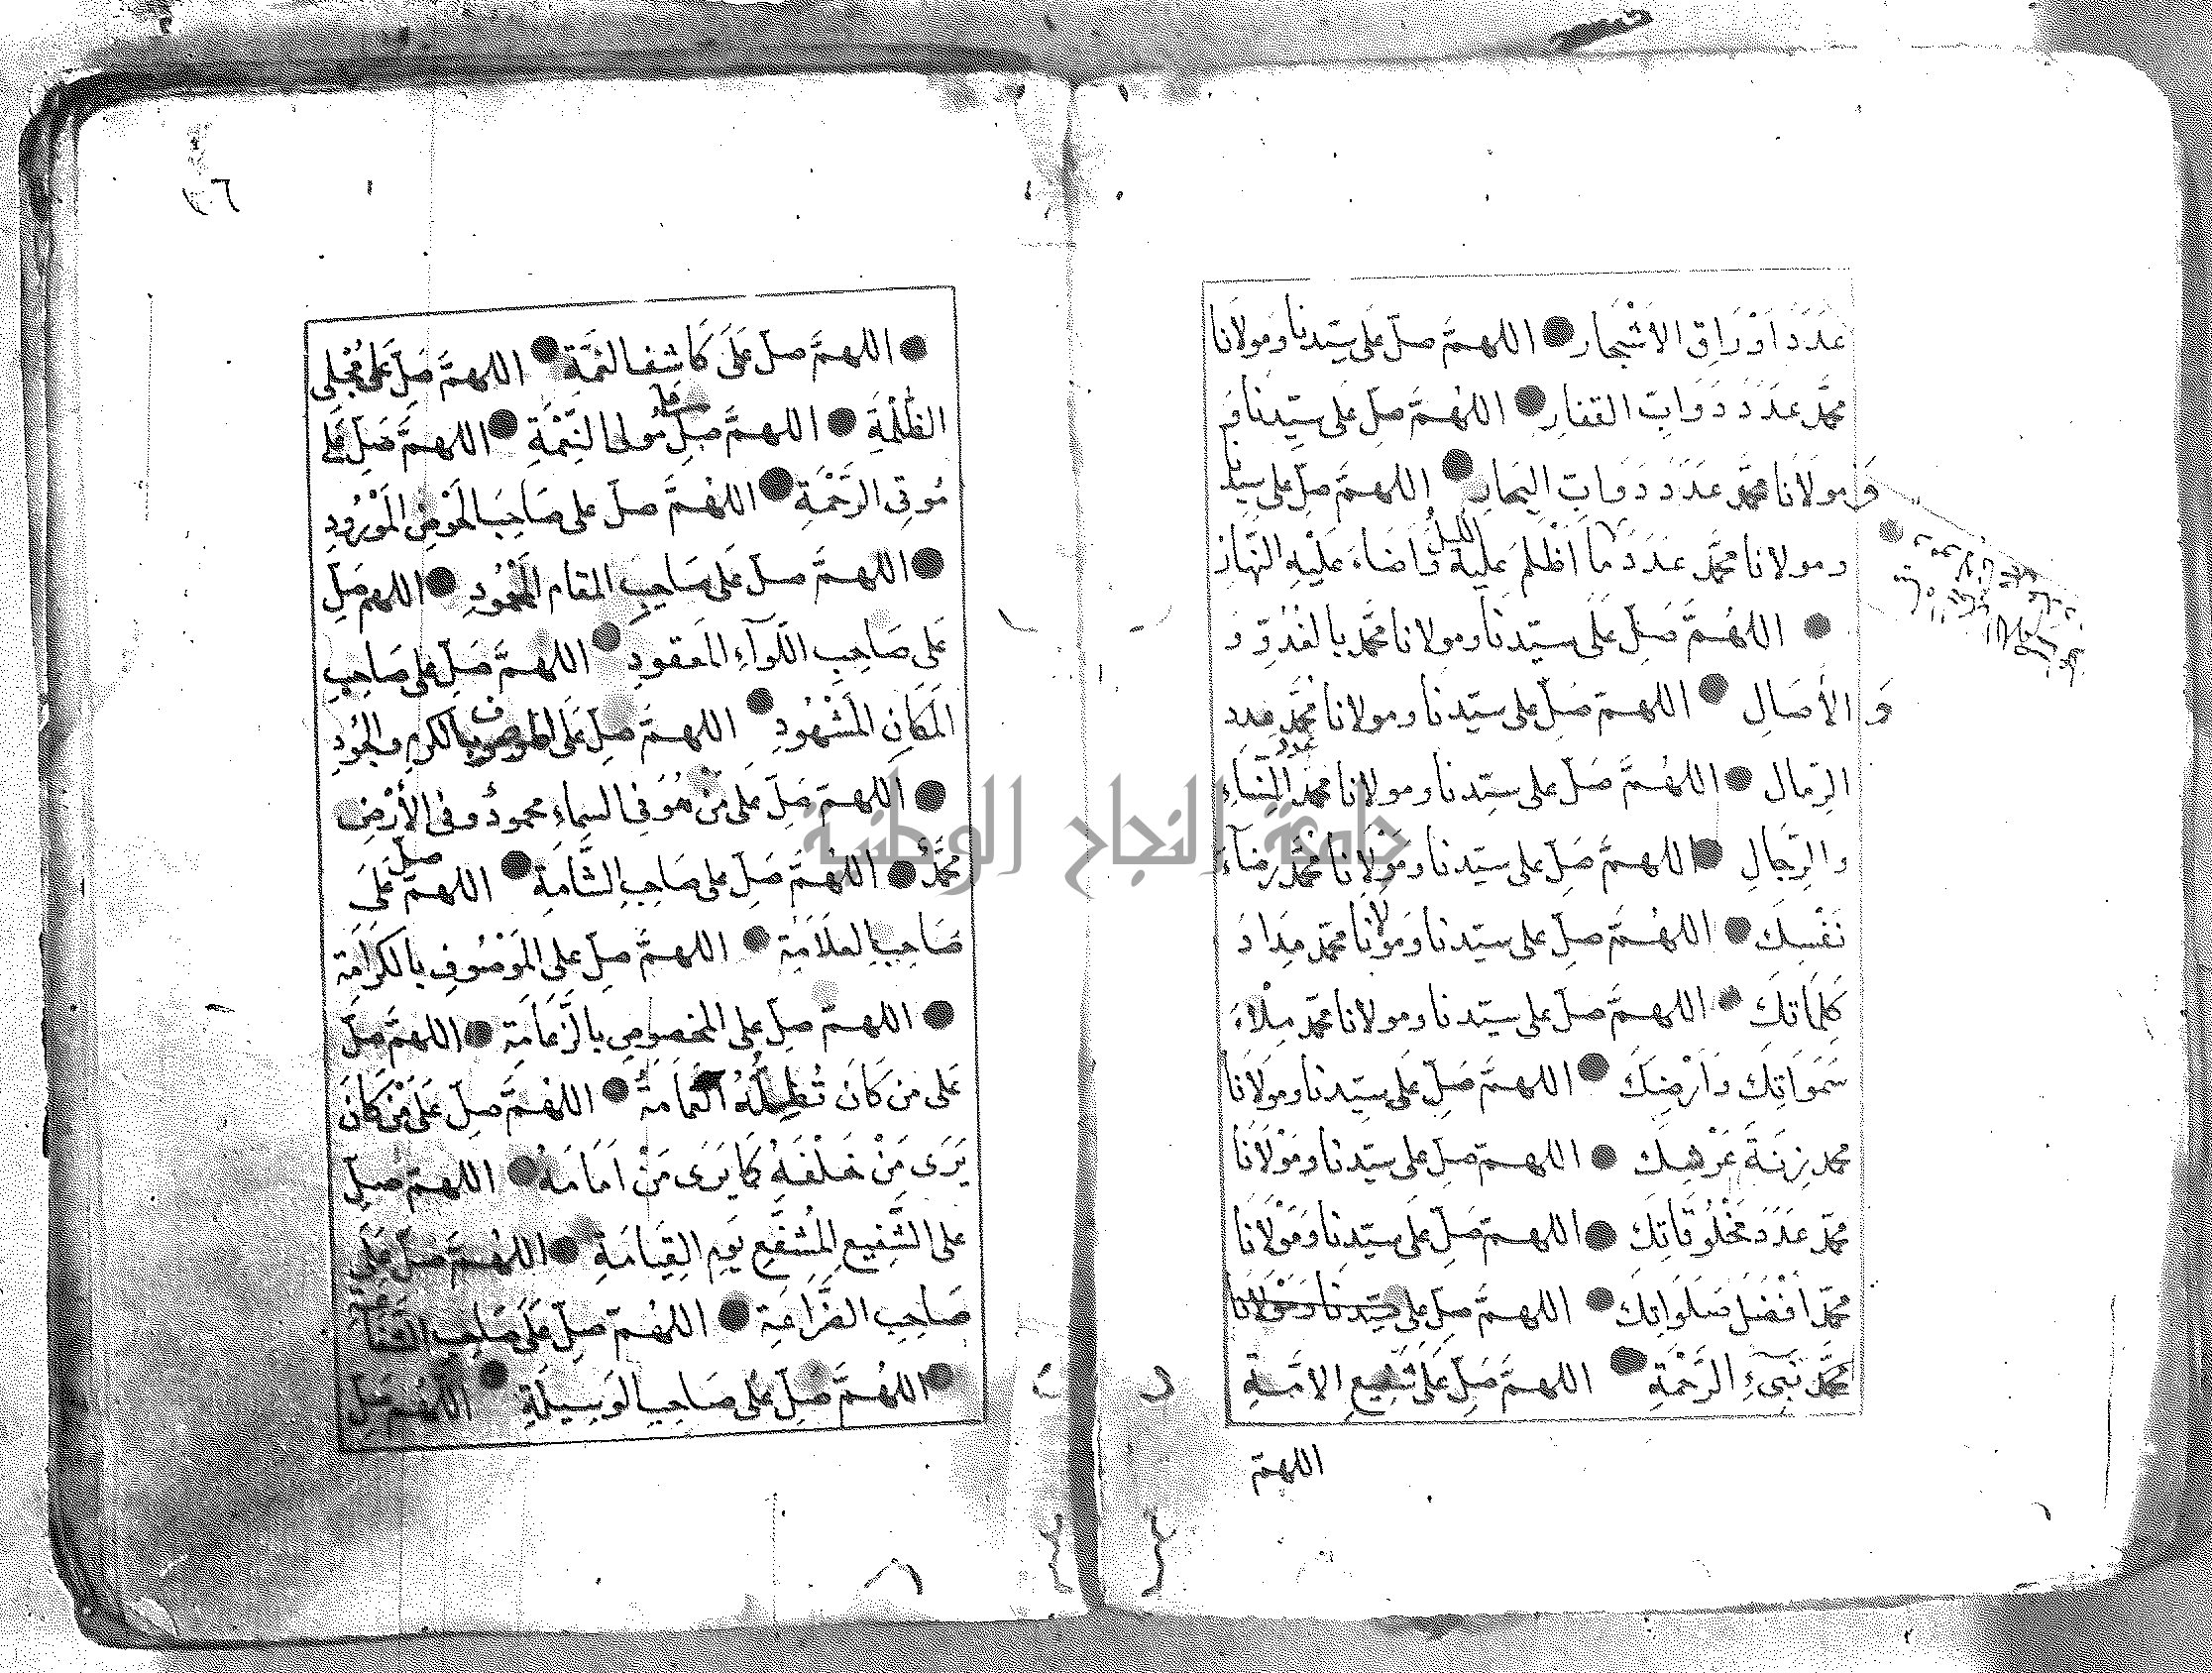 عَدَدَ اَوْرَاقِ الاَشْجَارِ اللهمَّ صلّ عَلى سيّدنا ومولانا
محمَّد عَدَدَ دَوَابِّ القفارِ اللهُمَّ صلّ على سيّدنا وَ
وَمولانا محمَّد عَدَدَ دَوَابِّ البحَارِ اللهمَّ صلّ على سيّدنا
ومولانا محمَّد عدَدَ مَا اَظْلمَ عَليْهِ الليلُ وَاَضَاءَ عَليْهِ النَّهَارُ
اللهُمَّ صَلّ عَلَى سيّدنا ومولانا محمَّد بالغُدُوِّ وَ
وَ الأَصَالِ اللهمّ صَلّ على سيّدنا ومولانا محمَّد عدد
الرّمَال اللهُمَّ صَلّ على سيّدنا ومولانا محمّد عدد النّسَاءِ
والرّجَالِ اللهمَّ صَلّ على سيّدنا ومَوْلانا محمَّد رضَآءَ
نَفْسِكَ اللهُمَّ صلّ على سيّدنا وَمَوْلانا محمّد مِدَادَ
كَلِمَاتِكَ اللهمَّ صلّ على سيّدنا ومولانا محمّد مِلْاءَ
سَمَوَاتِكَ وَاَرْضِكَ اللهمَّ صَلّ عَلَى سيّدنا ومولانا
محمد زِنَةَ عَرْشِكَ اللهمّ صلّ عَلى سيّدنا ومَوْلَانَا
محمّد عَدَدَ مَخْلُوقَاتِكَ اللهمّ صَلّ عَلَى سيّدنا وَمَوْلَانَا
محمّد اَفْضَلَ صَلَوَاتِكَ اللهمَّ صلّ على سيّدنا وَمَوْلَانا
محَمَّد نَبيّءِ الرَّحْمَةِ اللهمَّ صَلّ عَلَى شَفِيعِ الامّةِ
اللهمّ
١٦
اللهمَّ صلّ عَلَى كَاشِفِ الغُمَّةِ اللهمَّ صَلّ عَلَى مُجْلِى
الظُّلْمَةِ اللهمَّ صلّ على مُولى النِّعْمَةِ اللهمَّ صَلّ عَلَى
مُوتِى الرَّحْمَةِ اللهُمَّ صلّ على صَاحِبِ الحَوْضِ المَوْرُودِ
اللهمَّ صلّ عَلى صَاحِبِ المقام المَحْمُودِ اللهم صَلّ
عَلى صَاحِبِ اللّوَآءِ المعقودِ اللهمَّ صَلّ على صَاحِبِ
المَكَانِ المَشْهُودِ اللهمَّ صلّ عَلَى الموصوف بالكرمِ والجُودِ
اللهمّ صَلّ عَلى مَنْ هُوَ فى السماءِ محمودٌ وفى الأرْضِ
محمَّدٌ اللهُمَّ صَلّ على صَاحِبِ الشَّامَةِ اللهمّ صلّ عَلَى
صَاحِبِ العلَامَةِ اللهمَّ صلّ على المَوْصُوفِ بالكَرَامَةِ
اللهمّ صلّ على المخصوصِ بالزَّعَامَةِ اللهمَّ صلّ
عَلى مَن كَانَ تُظِلُّهُ الغَمَامَةُ اللهُمَّ صلّ عَلَى مَنْ كَانَ
يَرَى مَنْ خَلْفَهُ كَمَا يَرَى مَنْ اَمَامَهُ اللهمّ صلّ
على الشَّفِيعِ المُشَفَّعِ يَومِ القِيَامَةِ اللهُمَّ صَلّ عَلَى
صَاحِبِ الضَّرَاعَةِ اللهُمّ صلّ عَلَى صَاحِبِ الشفاعة
اللهُمَّ صلّ على صَاحِبِ الوَسِيلَةِ اللهُمَّ صَلّ
جامعة النجاح الوطنية